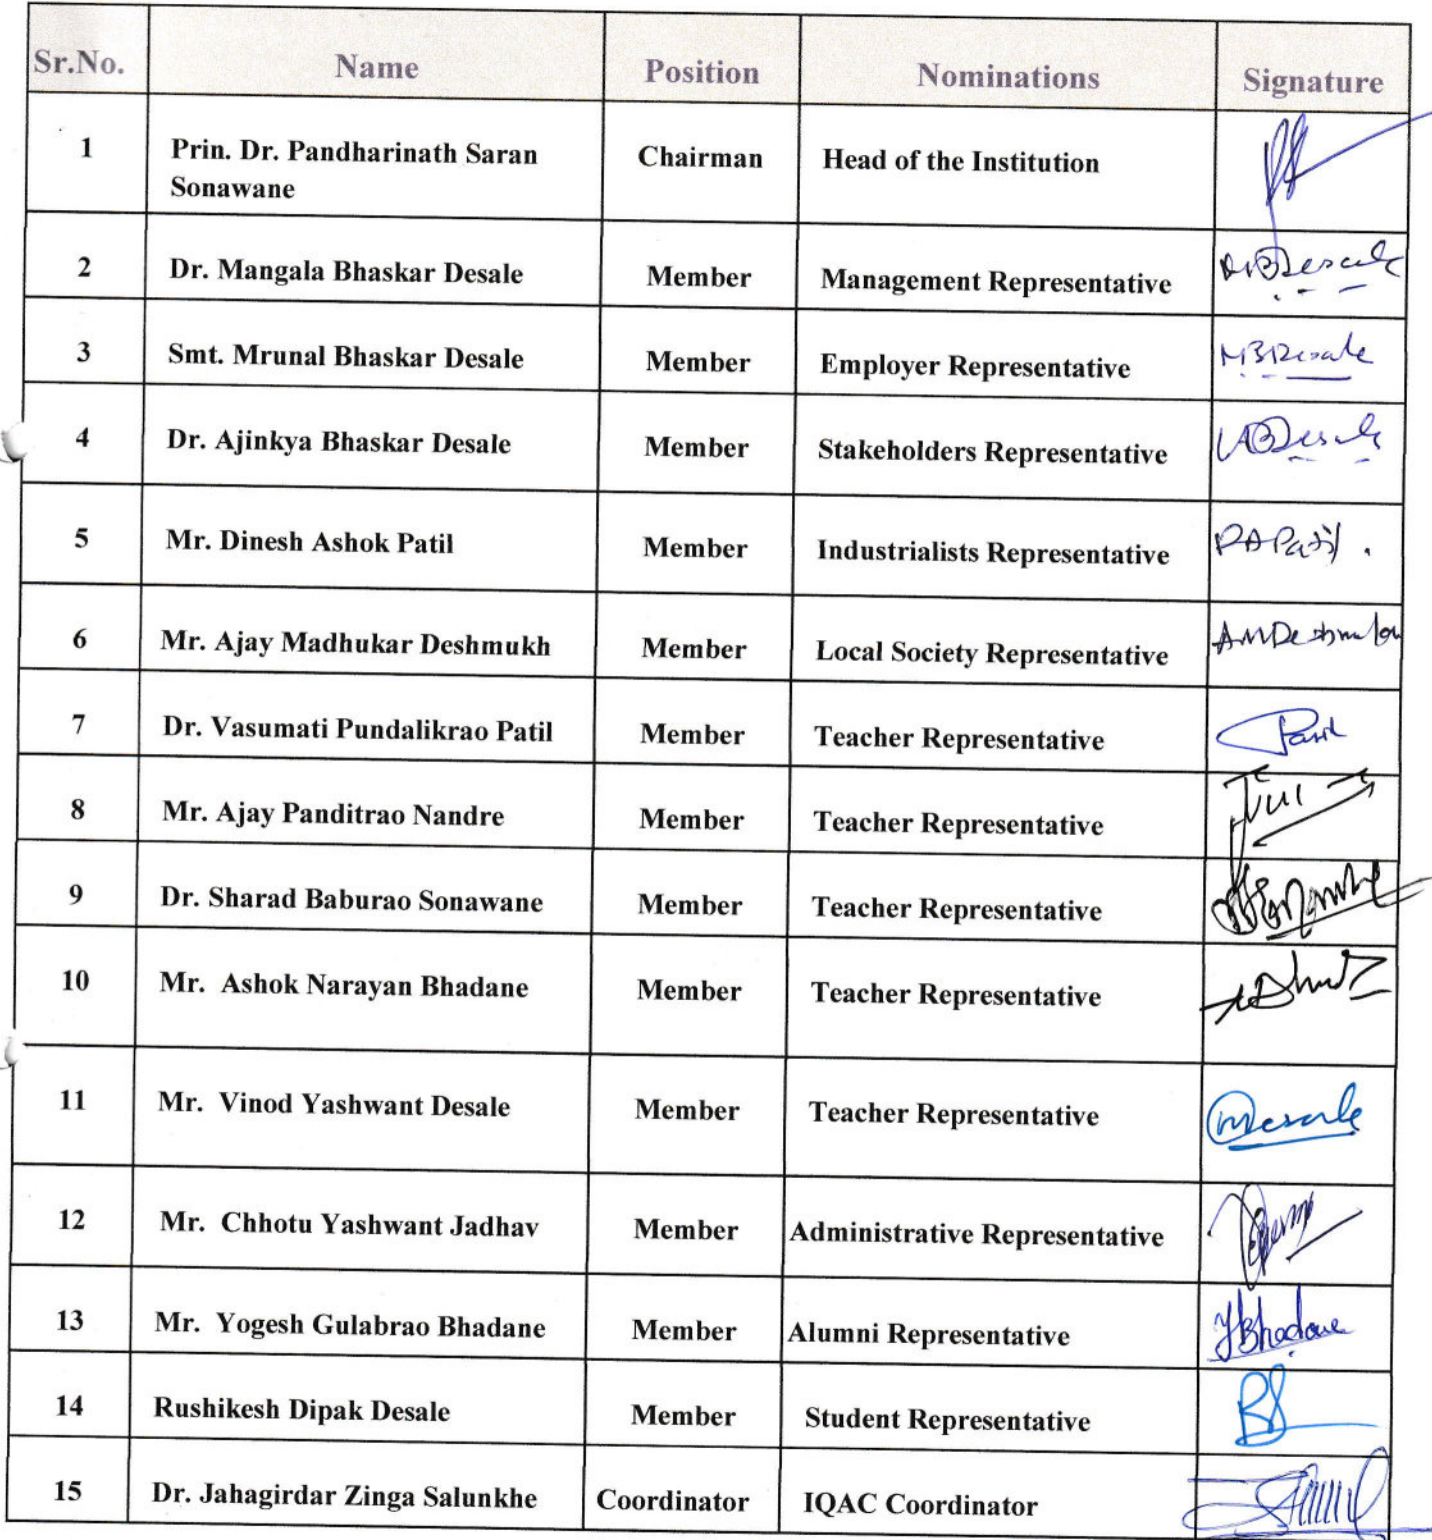 Sr.No. Name Position Nominations Signature
1 Prin. Dr. Pandharinath Saran Chairman Head of the Institution
Sonawane
2 Dr. Mangala Bhaskar Desale Member Management Representative MBDesale
3 Smt. Mrunal Bhaskar Desale Member Employer Representative MBDesale
4 Dr. Ajinkya Bhaskar Desale Member Stakeholders Representative ABDesale
5 Mr. Dinesh Ashok Patil Member Industrialists Representative DAPatil.
6 Mr. Ajay Madhukar Deshmukh Member Local Society Representative AMDeshmukh
7 Dr. Vasumati Pundalikrao Patil Member Teacher Representative Patil
8 Mr. Ajay Panditrao Nandre Member Teacher Representative
9 Dr. Sharad Baburao Sonawane Member Teacher Representative
10 Mr. Ashok Narayan Bhadane Member Teacher Representative
11 Mr. Vinod Yashwant Desale Member Teacher Representative Desale
12 Mr. Chhotu Yashwant Jadhav Member Administrative Representative
13 Mr. Yogesh Gulabrao Bhadane Member Alumni Representative YBhadane
14 Rushikesh Dipak Desale Member Student Representative
15 Dr. Jahagirdar Zinga Salunkhe Coordinator IQAC Coordinator